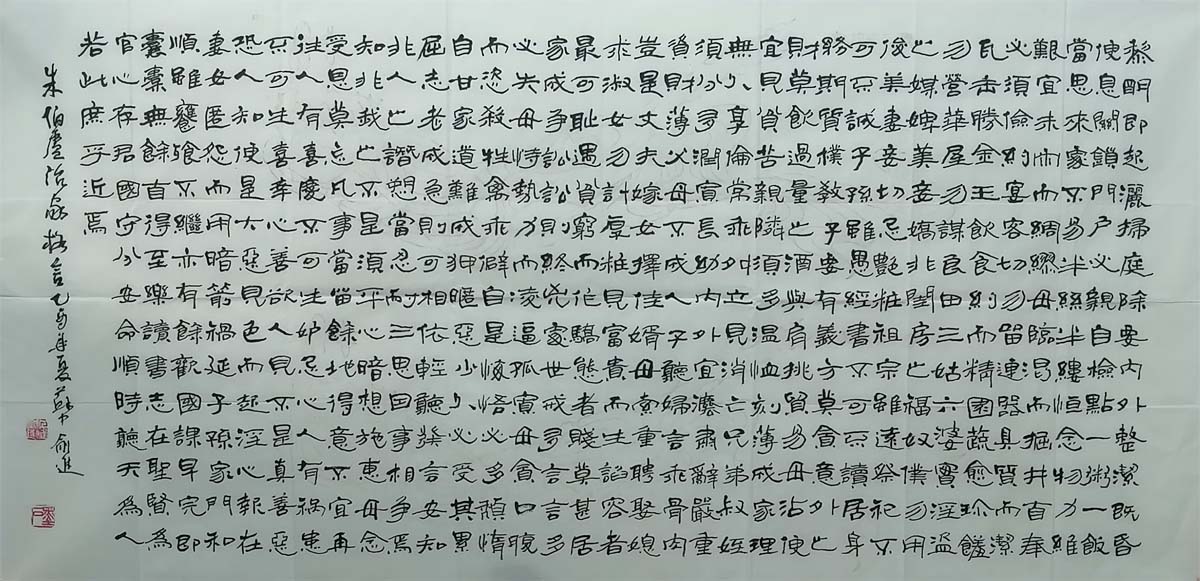 黎明即起灑掃庭除要內外整潔既昏
使息關鎖門戶必親自檢點一粥一飯
當思來處不易半絲半縷恆念物力維
艱宜未雨而綢繆毋臨渴而掘井自奉
必須儉約宴客切勿留連器具質而潔
瓦缶勝金玉飲食約而精園蔬愈珍饈
勿營華屋勿謀良田三姑六婆實淫盜
之媒婢美妾嬌非閨房之福奴僕勿用
俊美妻妾切忌艷粧祖宗雖遠祭祀不
可不誠子孫雖愚經書不可不讀居身
務期質樸教子要有義方莫貪意外之
財莫飲過量之酒與肩挑貿易毋佔便
宜見貧苦親鄰須多溫恤刻薄成家理
無久享倫常乖舛立見消亡兄弟叔姪
須分多潤寡長幼內外宜灋肅辭嚴重
資財薄父母不成人子聽婦言乖骨肉
豈是丈夫嫁女擇佳婿毋索重聘娶媳
求淑女勿計厚粧見富貴而生諂容者
最可恥遇貧窮而作驕態者賤莫甚居
家戒爭訟訟則終凶處世戒多言言多
必失毋恃勢力而凌逼孤寡毋貪口腹
而恣殺牲禽乖僻自是悔悟必多頹惰
自甘家道難成狎暱惡少久必受其累
屈志老成急則可相依輕聽發言安知
非人之譖愬當忍耐三思因事相爭焉
知非我之不是須平心暗想施惠毋念
受恩莫忘凡事當留餘地得意不宜再
往人有喜慶不可生妒忌心人有禍患
不可生喜幸心善欲人見不是真善惡
恐人知便是大惡見色而起淫心報在
妻女匿怨而用暗箭禍延子孫家門和
順雖饔飧不繼亦有餘歡國課早完即
囊橐無餘自得至樂讀書志在聖賢為
官心存君國守分安命順時聽天為人
若此庶乎近焉
朱伯廬治家格言乙酉年夏蘇中俞進